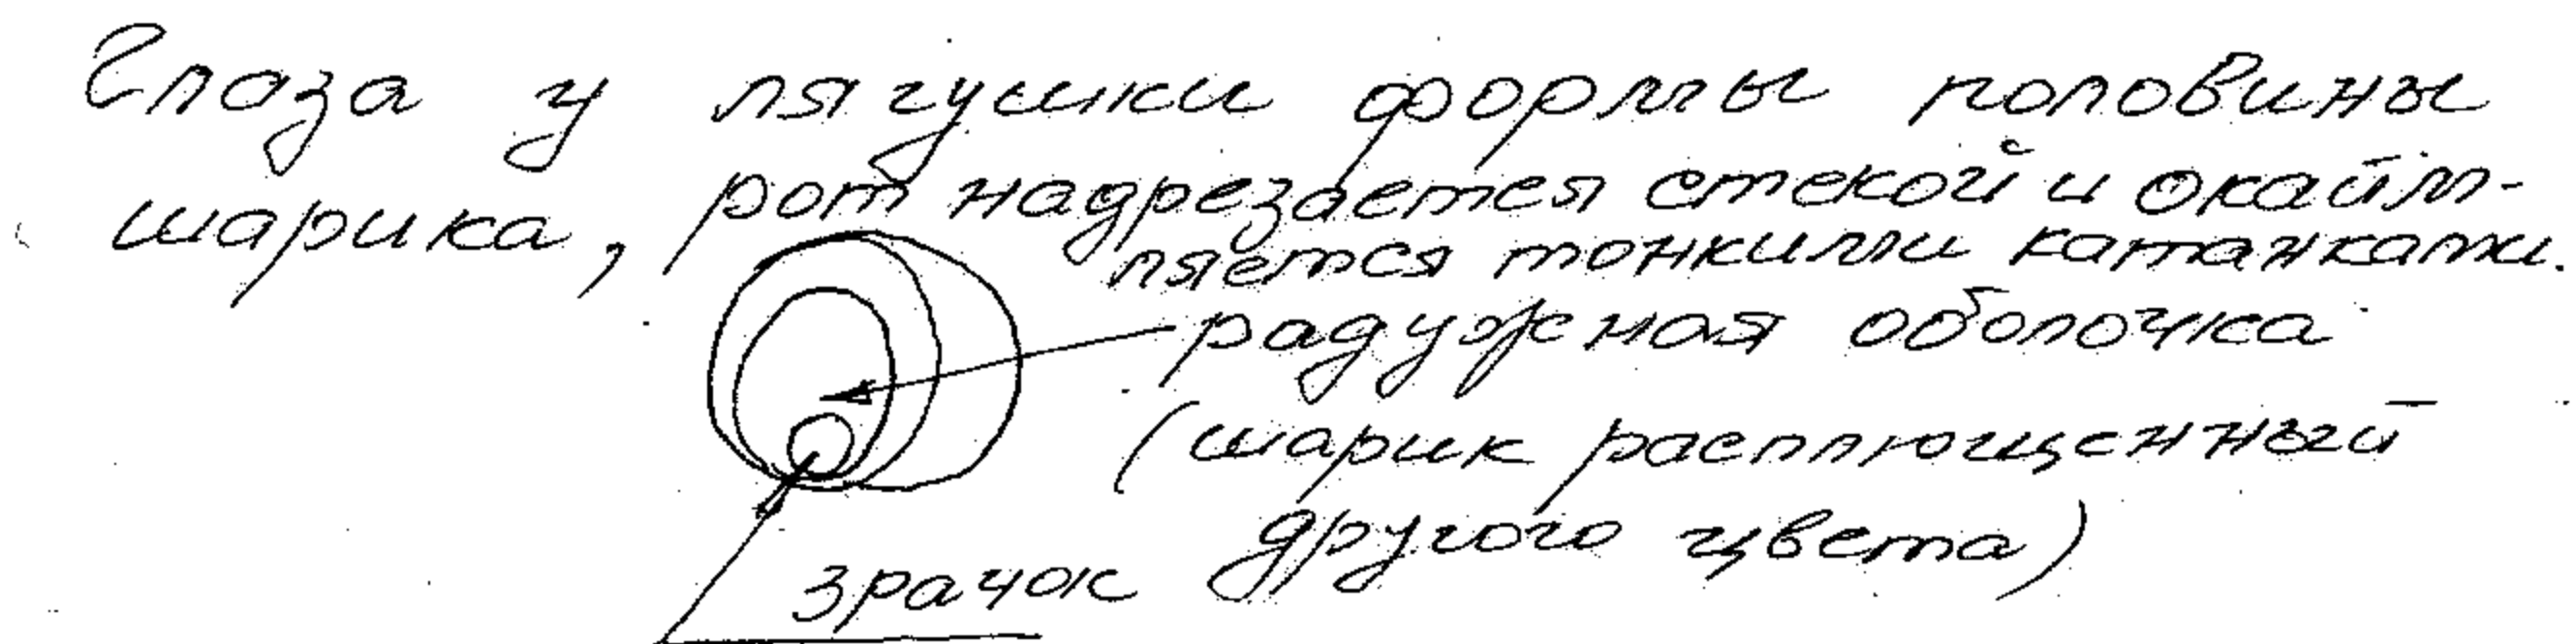 Глаза у лягушки формы половины
шарика, рот надрезается стекой и окайм-
ляется тонкими катанками.
радужная оболочка
(шарик расплющенный
другого цвета)
зрачок